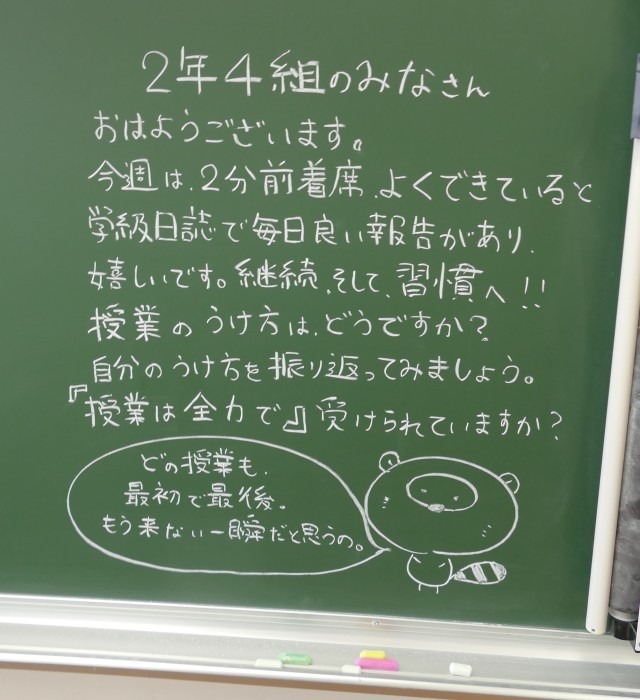 2年4組のみなさん
おはようございます。
今週は、2分前着席、よくできていると
学級日誌で毎日良い報告があり、
嬉しいです。継続、そして、習慣へ!!
授業のうけ方は、どうですか?
自分のうけ方を振り返ってみましょう。
『授業は全力で』受けられていますか?
どの授業も、
最初で最後。
もう来ない一瞬だと思うの。